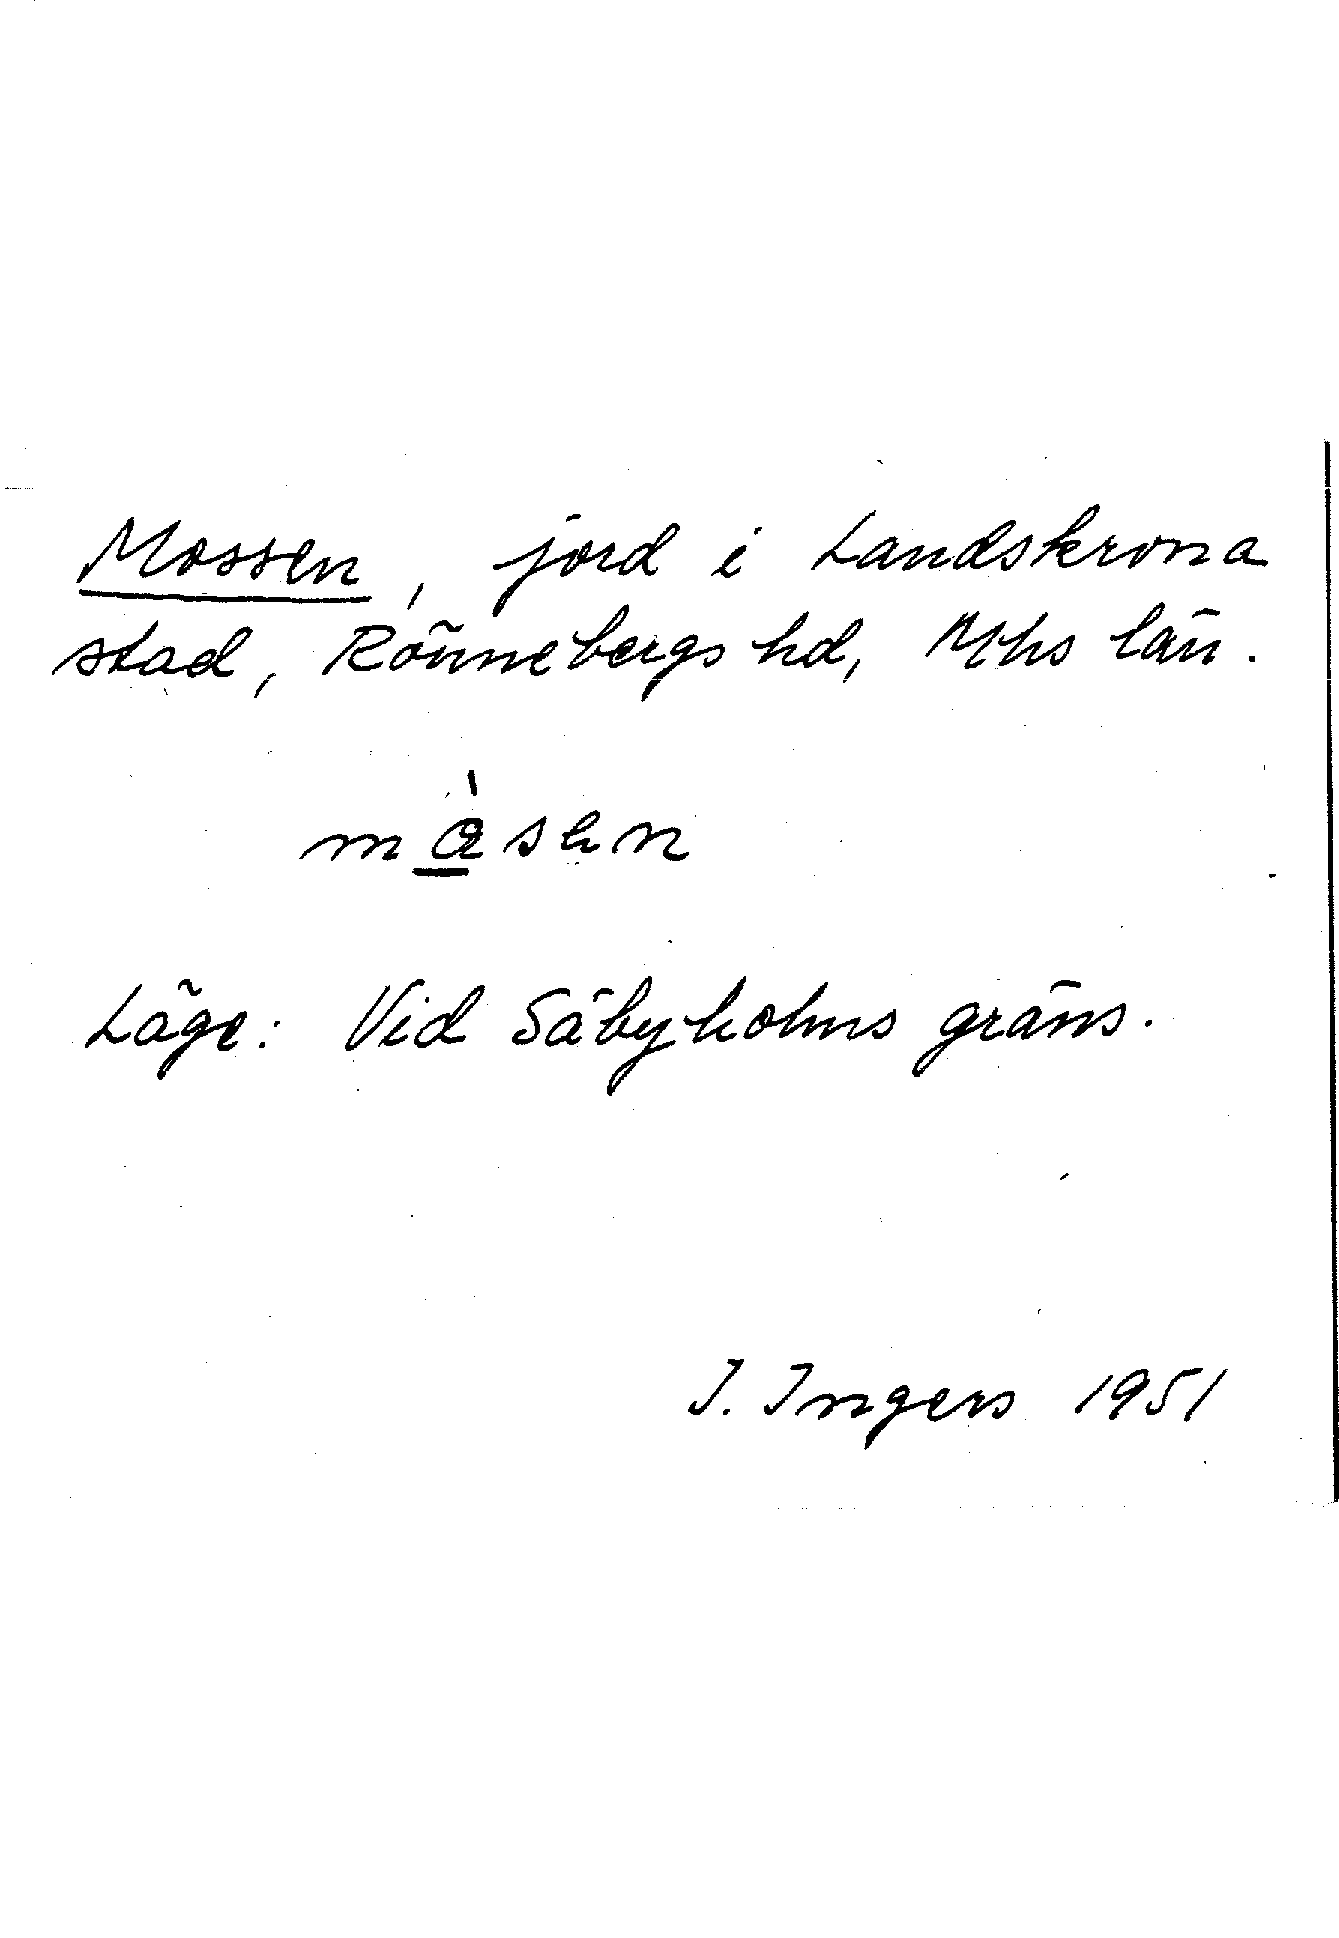 Mossen, jord i Landskrona
stad, Rönnebergs hd, Mhs län.
Läge: Vid Säbyholms gräns.
I. Ingers 1951